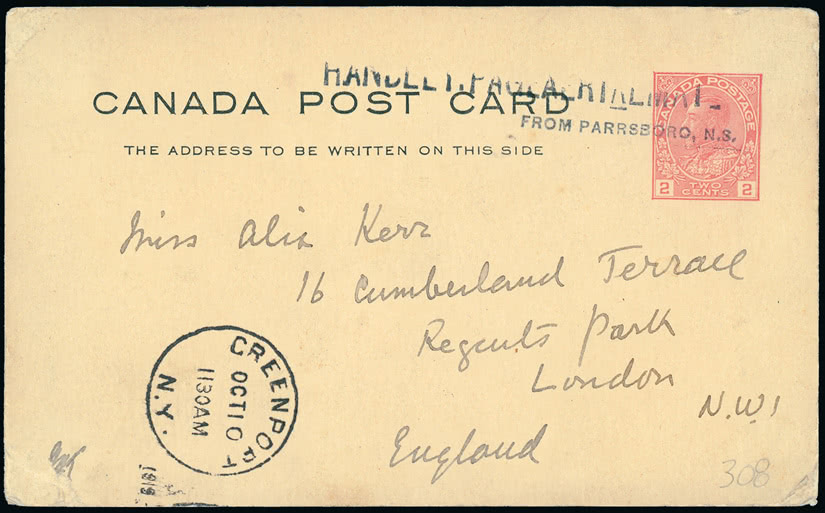 HANDLEY.PAGE AERIAL MAIL
FROM PARRSBORO, N.S.
CANADA POST CARD
THE ADDRESS TO BE WRITTEN ON THIS SIDE
CANADA POSTAGE
2 TWO CENTS 2
Miss Alix Kerr
16 Cumberland Terrace
Regents Park
London
N.W1
England
GREENPORT
OCT 10
1130AM
N.Y.
1919
308